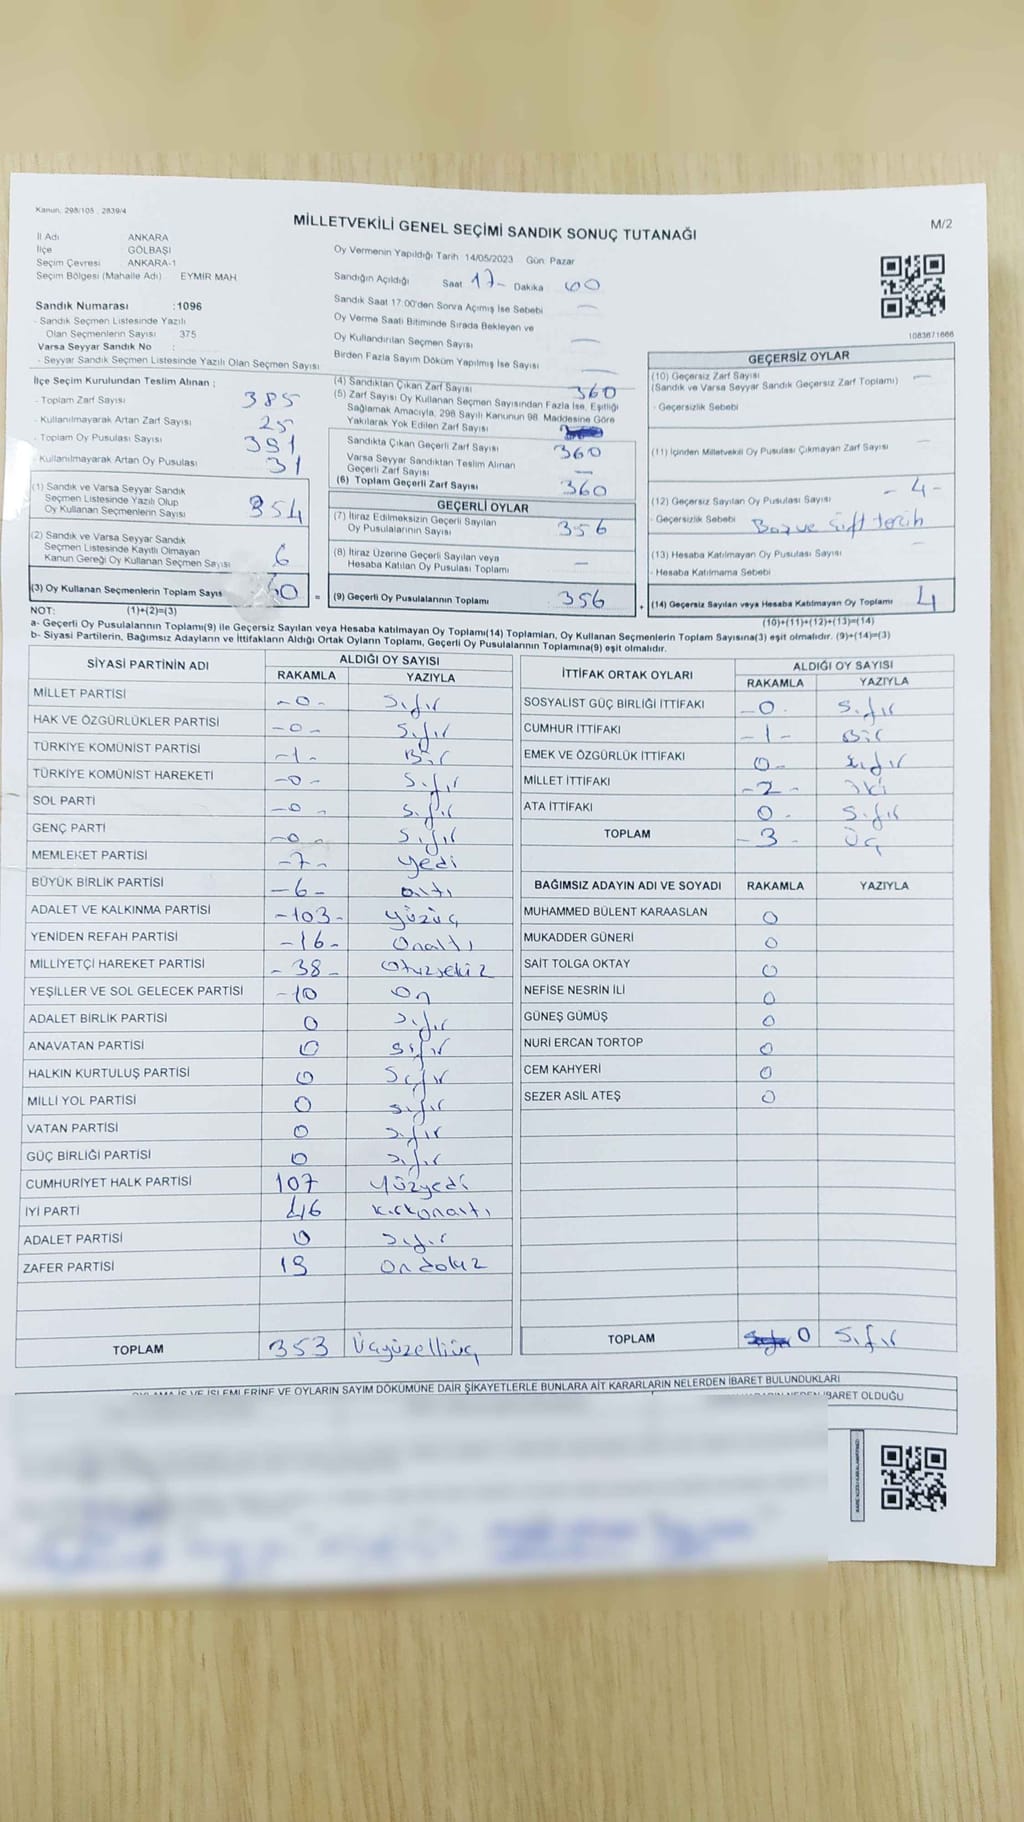 Kanun: 298/105 , 2839/4
MİLLETVEKİLİ GENEL SEÇİMİ SANDIK SONUÇ TUTANAĞI
M/2
İl Adı : ANKARA
İlçe : GÖLBAŞI
Seçim Çevresi : ANKARA-1
Seçim Bölgesi (Mahalle Adı) : EYMİR MAH.
Oy Vermenin Yapıldığı Tarih 14/05/2023 Gün: Pazar
Sandığın Açıldığı Saat 17- Dakika 00
Sandık Saat 17:00'den Sonra Açımış İse Sebebi —
Oy Verme Saati Bitiminde Sırada Bekleyen ve
Oy Kullandırılan Seçmen Sayısı —
Birden Fazla Sayım Döküm Yapılmış İse Sayısı —
1083671666
Sandık Numarası : 1096
- Sandık Seçmen Listesinde Yazılı
Olan Seçmenlerin Sayısı 375
Varsa Seyyar Sandık No :
- Seyyar Sandık Seçmen Listesinde Yazılı Olan Seçmen Sayısı
İlçe Seçim Kurulundan Teslim Alınan ;
- Toplam Zarf Sayısı : 385
- Kullanılmayarak Artan Zarf Sayısı : 25
- Toplam Oy Pusulası Sayısı : 391
- Kullanılmayarak Artan Oy Pusulası : 31
(1) Sandık ve Varsa Seyyar Sandık
Seçmen Listesinde Yazılı Olup
Oy Kullanan Seçmenlerin Sayısı 354
(2) Sandık ve Varsa Seyyar Sandık
Seçmen Listesinde Kayıtlı Olmayan
Kanun Gereği Oy Kullanan Seçmen Sayısı 6
(3) Oy Kullanan Seçmenlerin Toplam Sayıs 60 =
(4) Sandıktan Çıkan Zarf Sayısı 360
(5) Zarf Sayısı Oy Kullanan Seçmen Sayısından Fazla İse, Eşitliği
Sağlamak Amacıyla, 298 Sayılı Kanunun 98. Maddesine Göre
Yakılarak Yok Edilen Zarf Sayısı
Sandıkta Çıkan Geçerli Zarf Sayısı 360
Varsa Seyyar Sandıktan Teslim Alınan
Geçerli Zarf Sayısı —
(6) Toplam Geçerli Zarf Sayısı : 360
GEÇERLİ OYLAR
(7) İtiraz Edilmeksizin Geçerli Sayılan
Oy Pusulalarının Sayısı : 356
(8) İtiraz Üzerine Geçerli Sayılan veya
Hesaba Katılan Oy Pusulası Toplamı : —
(9) Geçerli Oy Pusulalarının Toplamı : 356 +
GEÇERSİZ OYLAR
(10) Geçersiz Zarf Sayısı
(Sandık ve Varsa Seyyar Sandık Geçersiz Zarf Toplamı) —
- Geçersizlik Sebebi
(11) İçinden Milletvekili Oy Pusulası Çıkmayan Zarf Sayısı —
(12) Geçersiz Sayılan Oy Pusulası Sayısı - 4 -
- Geçersizlik Sebebi Boş ve Çift tercih
(13) Hesaba Katılmayan Oy Pusulası Sayısı —
- Hesaba Katılmama Sebebi
(14) Geçersiz Sayılan veya Hesaba Katılmayan Oy Toplamı 4
NOT: (1)+(2)=(3)
(10)+(11)+(12)+(13)=(14)
a- Geçerli Oy Pusulalarının Toplamı(9) ile Geçersiz Sayılan veya Hesaba katılmayan Oy Toplamı(14) Toplamları, Oy Kullanan Seçmenlerin Toplam Sayısına(3) eşit olmalıdır. (9)+(14)=(3)
b- Siyasi Partilerin, Bağımsız Adayların ve İttifakların Aldığı Ortak Oyların Toplamı, Geçerli Oy Pusulalarının Toplamına(9) eşit olmalıdır.
SİYASİ PARTİNİN ADI ALDIĞI OY SAYISI
RAKAMLA YAZIYLA
MİLLET PARTİSİ -0- Sıfır
HAK VE ÖZGÜRLÜKLER PARTİSİ -0- Sıfır
TÜRKİYE KOMÜNİST PARTİSİ -1- Bir
TÜRKİYE KOMÜNİST HAREKETİ -0- Sıfır
SOL PARTİ -0- Sıfır
GENÇ PARTİ -0- Sıfır
MEMLEKET PARTİSİ -7- Yedi
BÜYÜK BİRLİK PARTİSİ -6- altı
ADALET VE KALKINMA PARTİSİ -103- Yüzüç
YENİDEN REFAH PARTİSİ -16- Onaltı
MİLLİYETÇİ HAREKET PARTİSİ -38- Otuzsekiz
YEŞİLLER VE SOL GELECEK PARTİSİ -10 On
ADALET BİRLİK PARTİSİ 0 Sıfır
ANAVATAN PARTİSİ 0 Sıfır
HALKIN KURTULUŞ PARTİSİ 0 Sıfır
MİLLİ YOL PARTİSİ 0 Sıfır
VATAN PARTİSİ 0 Sıfır
GÜÇ BİRLİĞİ PARTİSİ 0 Sıfır
CUMHURİYET HALK PARTİSİ 107 Yüzyedi
İYİ PARTİ 46 Kırkonaltı
ADALET PARTİSİ 0 Sıfır
ZAFER PARTİSİ 19 Ondokuz
TOPLAM 353 Üçyüzelliüç
İTTİFAK ORTAK OYLARI ALDIĞI OY SAYISI
RAKAMLA YAZIYLA
SOSYALİST GÜÇ BİRLİĞİ İTTİFAKI -0- Sıfır
CUMHUR İTTİFAKI -1- Bir
EMEK VE ÖZGÜRLÜK İTTİFAKI 0- Sıfır
MİLLET İTTİFAKI -2- İki
ATA İTTİFAKI 0- Sıfır
TOPLAM -3- Üç
BAĞIMSIZ ADAYIN ADI VE SOYADI RAKAMLA YAZIYLA
MUHAMMED BÜLENT KARAASLAN 0
MUKADDER GÜNERİ 0
SAİT TOLGA OKTAY 0
NEFİSE NESRİN İLİ 0
GÜNEŞ GÜMÜŞ 0
NURİ ERCAN TORTOP 0
CEM KAHYERİ 0
SEZER ASİL ATEŞ 0
TOPLAM 0 Sıfır
İŞ VE İŞLEMLERİNE VE OYLARIN SAYIM DÖKÜMÜNE DAİR ŞİKAYETLERLE BUNLARA AİT KARARLARIN NELERDEN İBARET BULUNDUKLARI
İBARET OLDUĞU